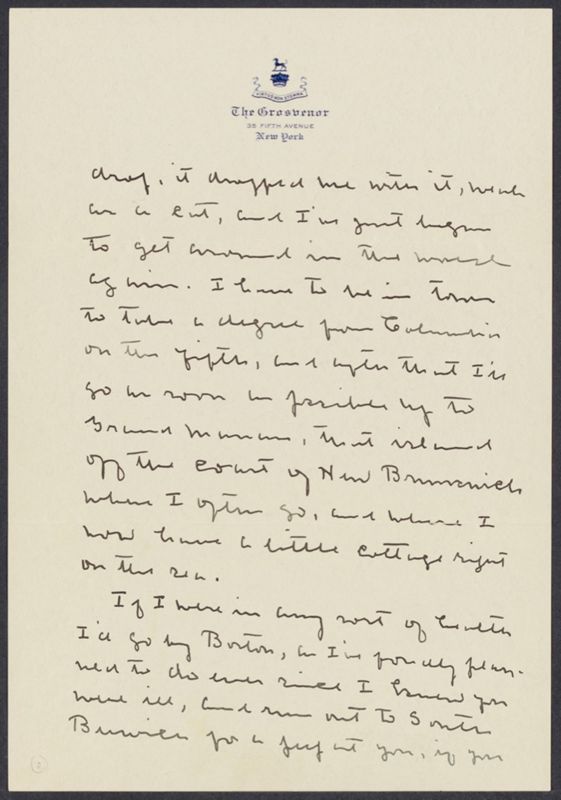 VIRTUS NON STEMMA
The Grosvenor
35 FIFTH AVENUE
New York
drop, it dropped me with it, weak
as a cat, and I've just begun
to get around in the world
again. I have to be in town
to take a degree from Columbia
on the fifth, and after that I'll
go as soon as possible up to
Grand Manan, that island
off the coast of New Brunswick
where I often go, and where I
now have a little cottage right
on the sea.
If I were in any sort of health
I'd go by Boston, as I've fondly plan-
ned to do ever since I knew you
were ill, and run out to South
Berwick for a peep at you, if you
2